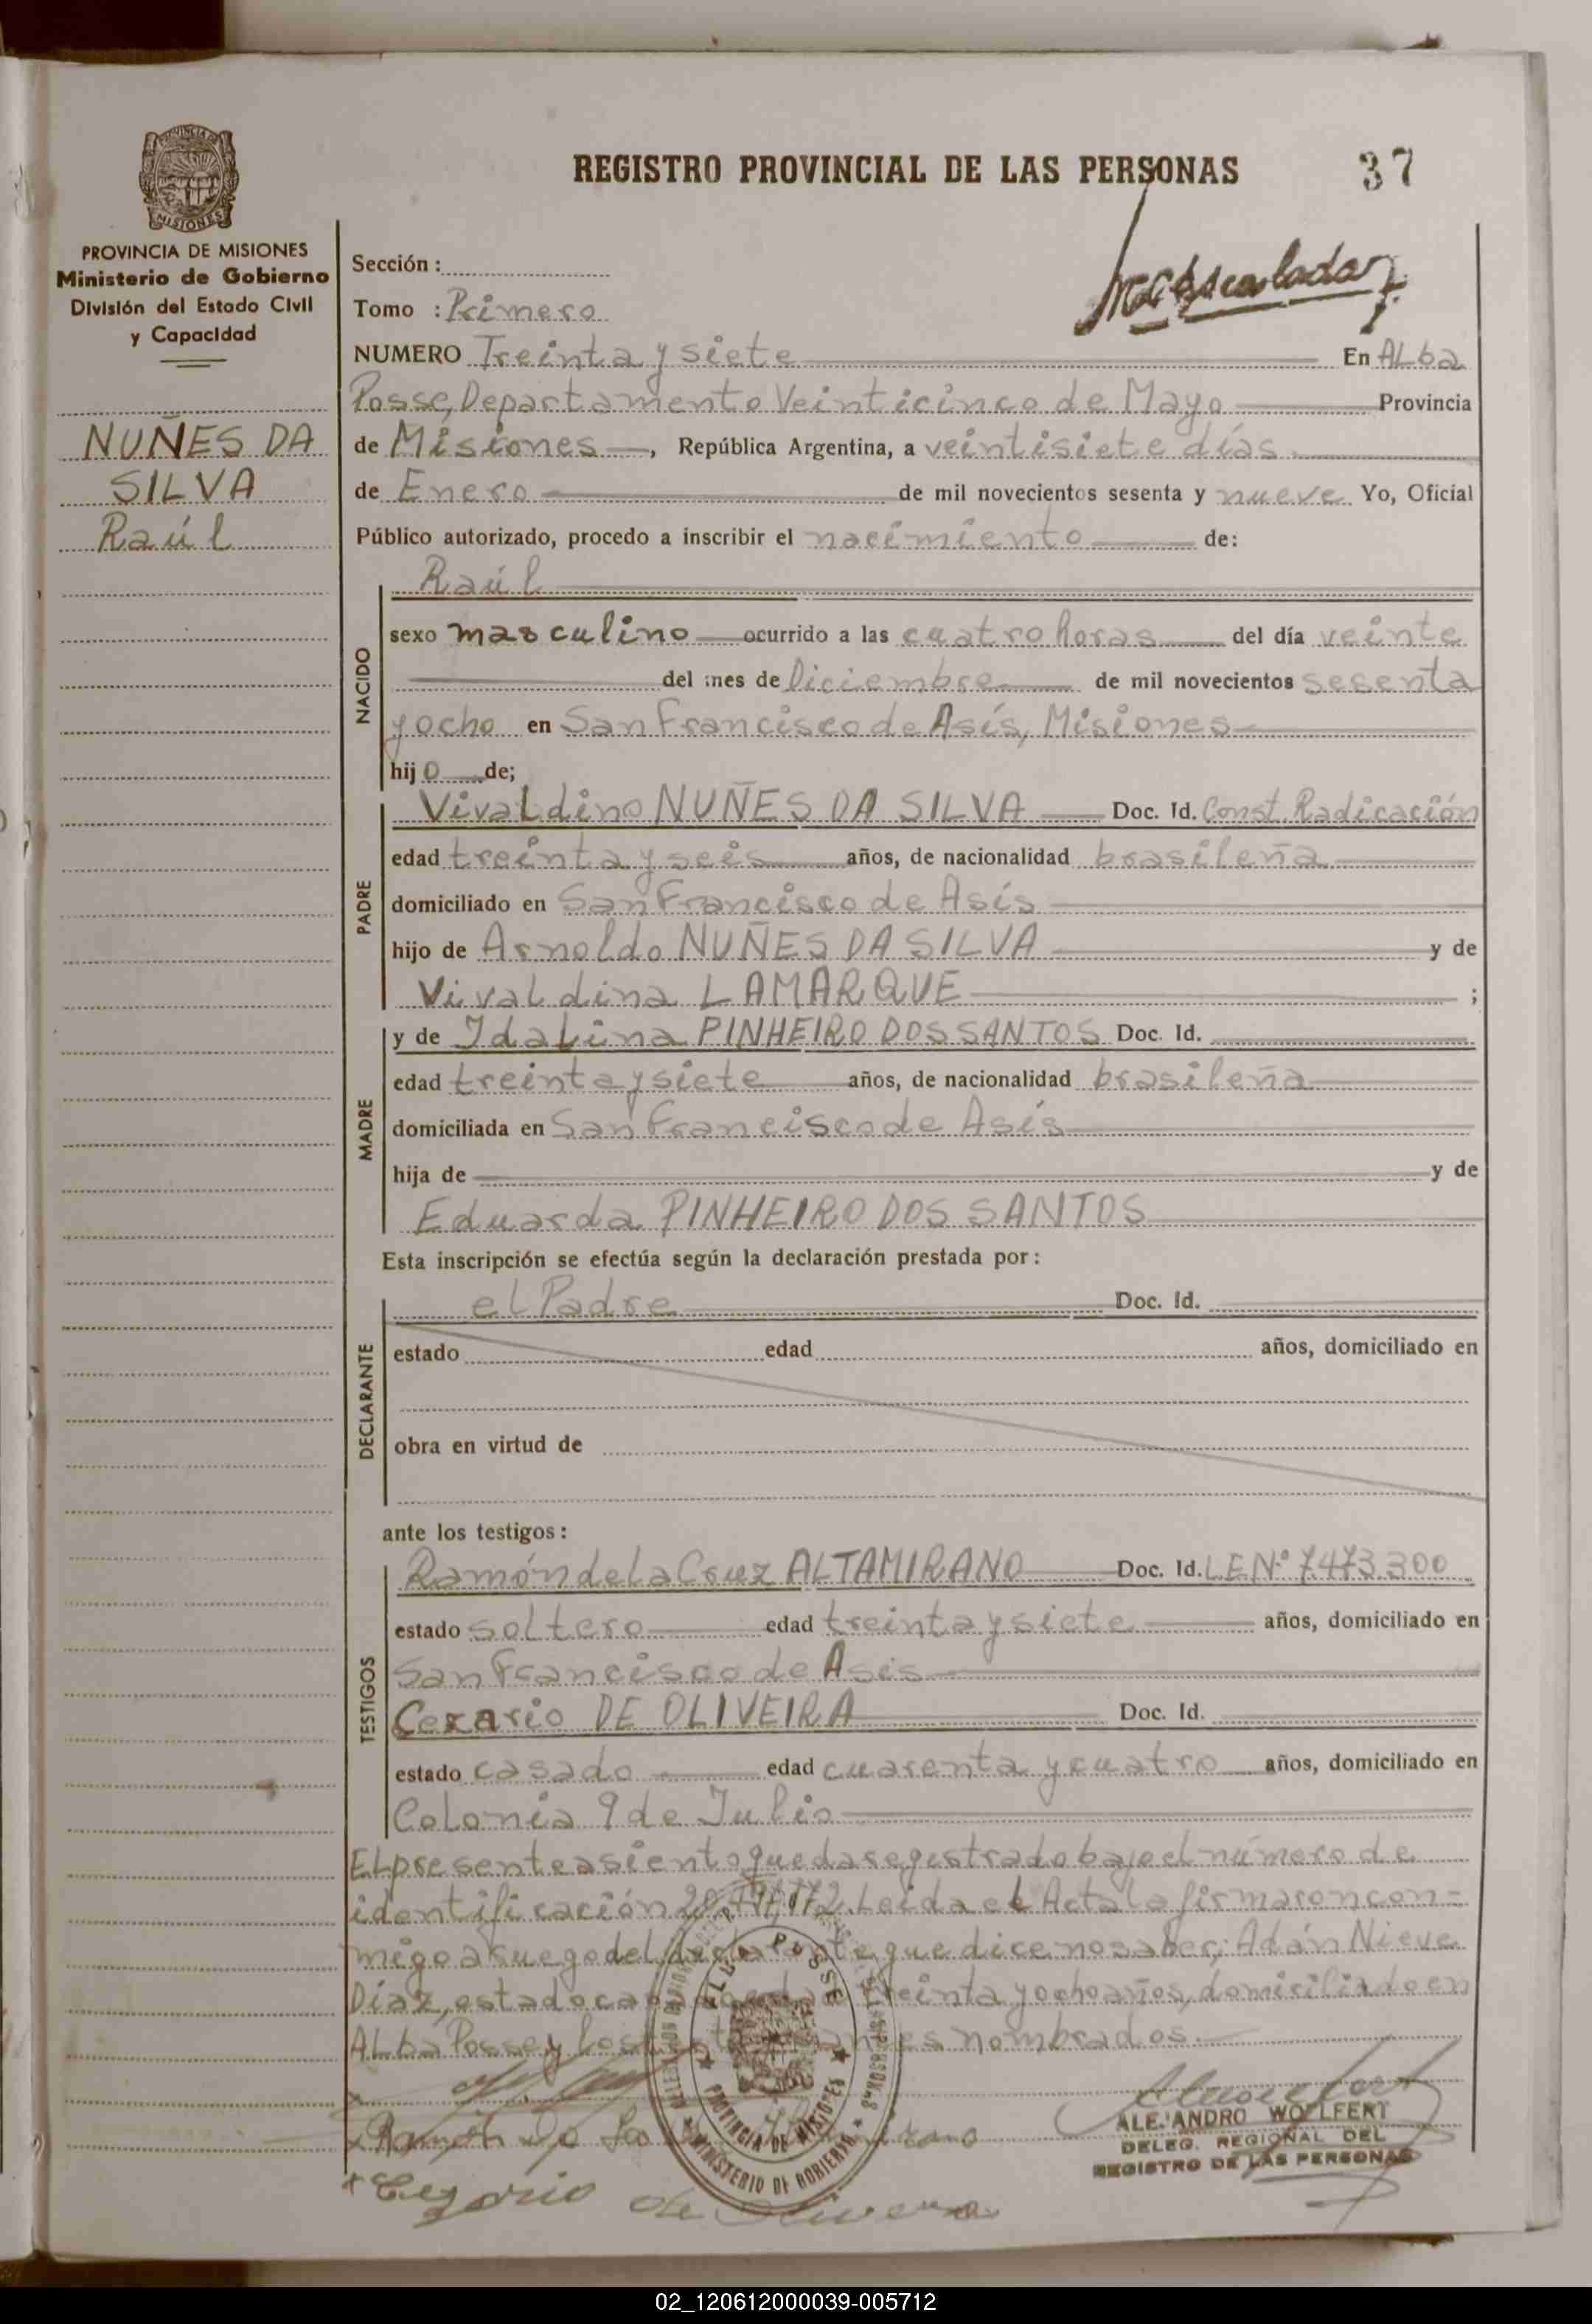 REGISTRO PROVINCIAL DE LAS PERSONAS
37
PROVINCIA DE MISIONES
Ministerio de Gobierno
División del Estado Civil
y Capacidad
NUÑES DA
SILVA
Raúl
Sección :
Tomo : Primero
NUMERO Treinta y siete En Alba
Posse, Departamento Veinticinco de Mayo Provincia
de Misiones, República Argentina, a veintisiete días
de Enero de mil novecientos sesenta y nueve Yo, Oficial
Público autorizado, procedo a inscribir el nacimiento de:
Raúl
NACIDO
sexo masculino ocurrido a las cuatro horas del día veinte
del mes de Diciembre de mil novecientos sesenta
y ocho en San Francisco de Asís, Misiones
hijo de;
PADRE
Vivaldino NUÑES DA SILVA Doc. Id. Const. Radicación
edad treinta y seis años, de nacionalidad brasileña
domiciliado en San Francisco de Asís
hijo de Arnoldo NUÑES DA SILVA y de
Vivaldina LAMARQUE ;
MADRE
y de Idalina PINHEIRO DOS SANTOS Doc. Id.
edad treinta y siete años, de nacionalidad brasileña
domiciliada en San Francisco de Asís
hija de y de
Eduarda PINHEIRO DOS SANTOS
Esta inscripción se efectúa según la declaración prestada por :
DECLARANTE
el Padre Doc. Id.
estado edad años, domiciliado en
obra en virtud de
ante los testigos :
TESTIGOS
Ramón de la Cruz ALTAMIRANO Doc. Id. L.E.Nº 7473300
estado soltero edad treinta y siete años, domiciliado en
San Francisco de Asis
Cezario DE OLIVEIRA Doc. Id.
estado casado edad cuarenta y cuatro años, domiciliado en
Colonia 9 de Julio
El presente asiento queda registrado bajo el número de
identificación Leida el Acta la firmaron con-
migo a ruego del declarante que dice no saber, Adán Nieve
Díaz, estado treinta y ocho años, domiciliado en
Alba Posse y los nombrados.
Ramón De La
Cezario de Olivera
ALBA POSSE
PROVINCIA DE MISIONES
MINISTERIO DE GOBIERNO
ALEJANDRO WOLFERT
DELEG. REGIONAL DEL
REGISTRO DE LAS PERSONAS
02_120612000039-005712